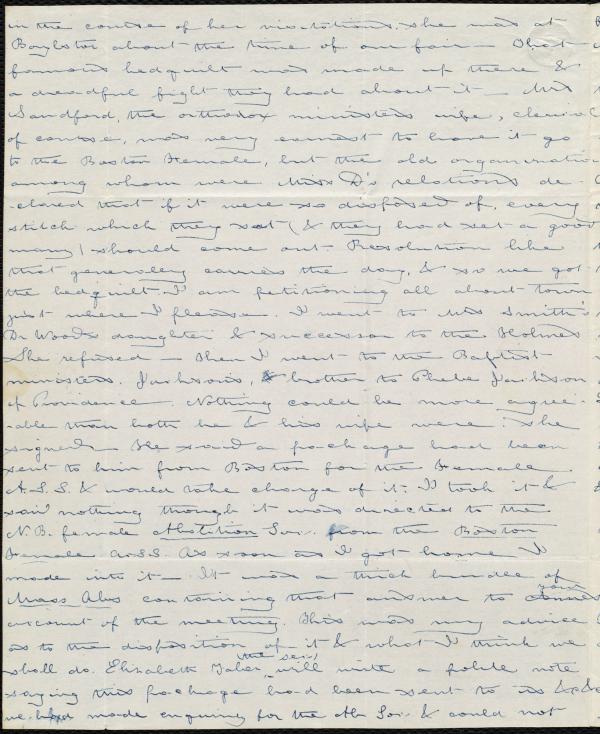 in the course of her visitations, she was at
Boylston about the time of our fair — That
famous bedquilt was made up there &
a dreadful fight they had about it — Mrs
Sandford, the orthodox ministers wife, clerical
of course, was very earnest to have it go
to the Boston Female, but the old organization
among whom were Miss D's relations de-
-clared that if it were so disposed of, every
stitch which they set (& they had set a good
many) should come out Resolution like
that generally carries the day, & so we got
the bedquilt I am petitioning all about town
just where I please. I went to Mrs Smith's
Dr Woods daughter & successor to the Holmes
She refused — then I went to the Baptist
ministers. Jacksons, brother to Phebe Jackson
of Providence. Nothing could be more agree-
-able than both he & his wife were: she
signed — He said a package had been
sent to him from Boston for the Female
A.S.S. & would take charge of it: I took it &
said nothing though it was directed to the
N.B. female Abolition Soc. from the Boston
Female A.S.S. As soon as I got home I
made into it — It was a thick bundle of
Mass Abs containing that answer to your
account of the meeting. This was my advice
as to the disposition of it & what I think we
shall do. Elizabeth Taber the sec'y will write a polite note
saying this package had been sent to us &c &c
we had made enquiry for the Ab Soc. & could not